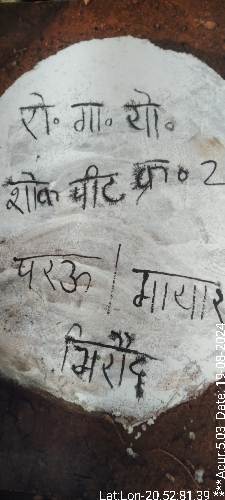 रो॰ गा॰ यो॰
शोक पीट क्र॰ 2
परऊ / मायार
भिरौद
Lat:Lon-20.52:81.39
***Acur:5.03 Date: 19-08-2024